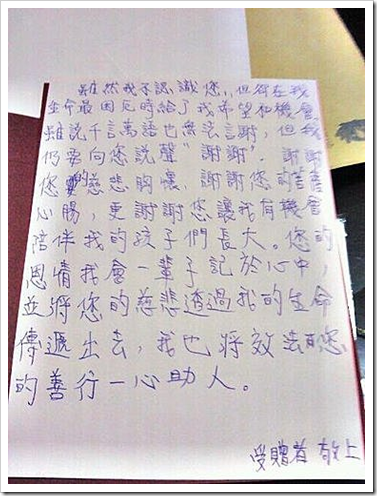 雖然我不認識您,但您在我
生命最困厄時給了我希望和機會
雖說千言萬語也無法言謝,但我
仍要向您說聲"謝謝"。謝謝
您的慈悲胸懷,謝謝您的菩薩
心腸,更謝謝您讓我有機會
陪伴我的孩子們長大。您的
恩情我會一輩子記於心中,
並將您的慈悲透過我的生命
傳遞出去,我也將效法您
的善行一心助人。
受贈者 敬上